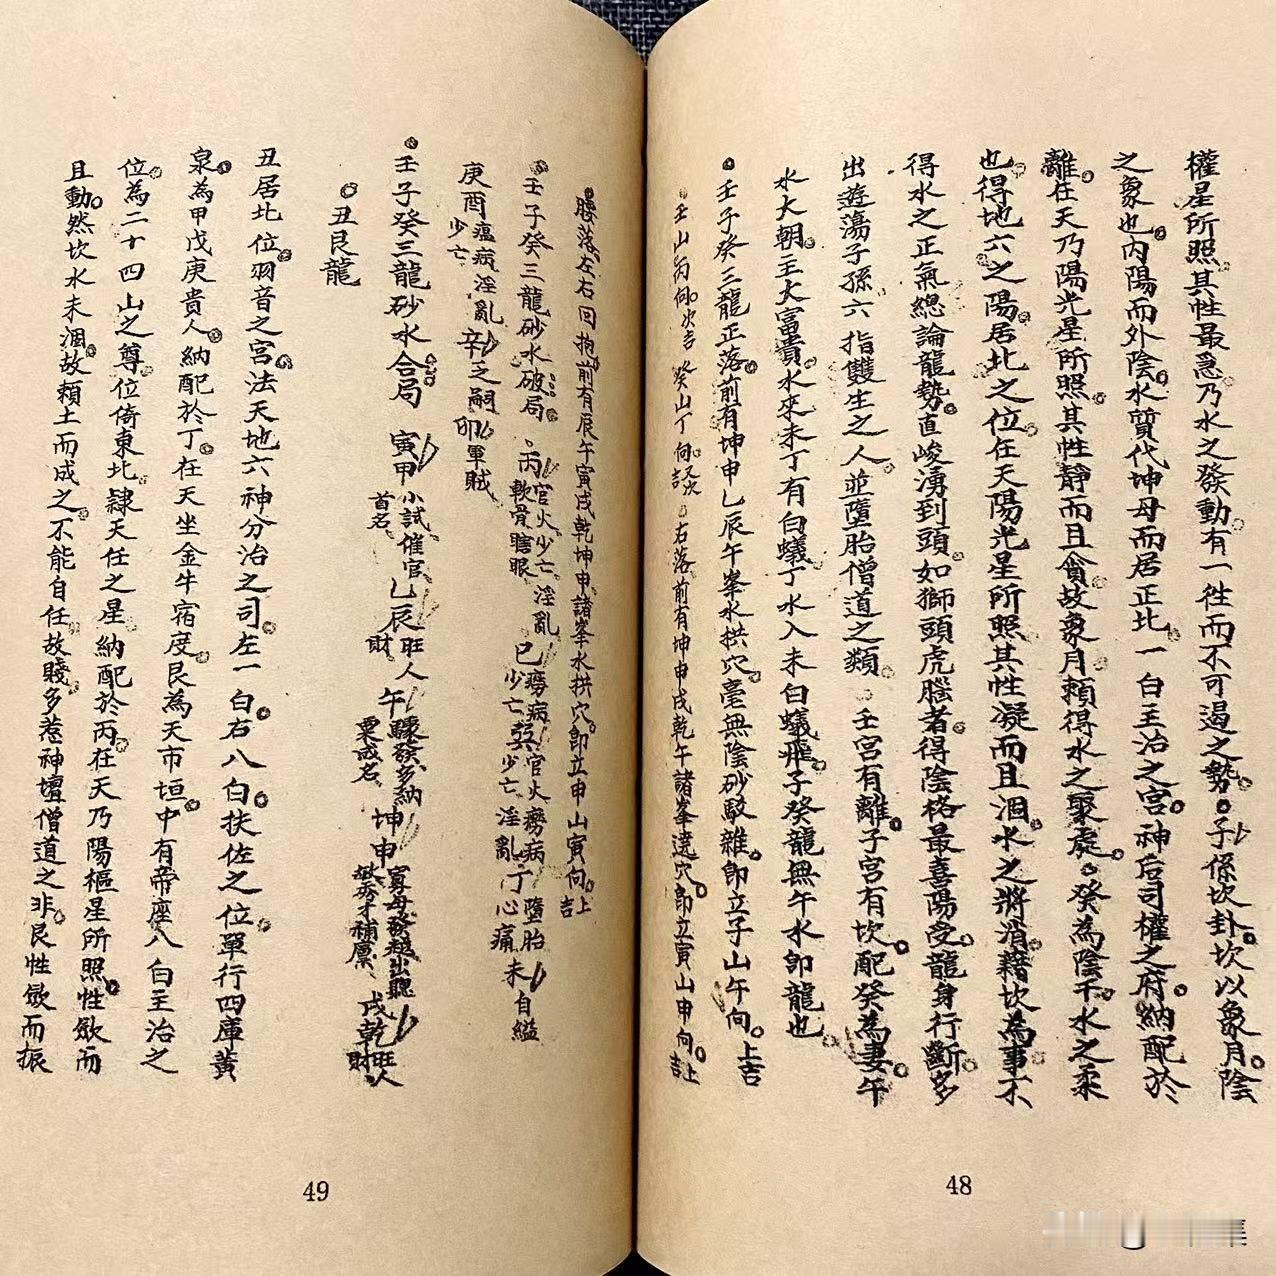 權星所照其性最急乃水之發動有一徃而不可遏之勢子係坎卦坎以象月陰
之象也内陽而外陰水質代坤母而居正北一白主治之宮神后司權之府納配於
離在天乃陽光星所照其性靜而且貪故象月賴得水之聚處癸為陰干水之柔
也得地六之陽居北之位在天陽光星所照其性凝而且涸水之將消藉坎為事不
得水之正氣總論龍勢直峻湧到頭如獅頭虎腦者得陰格最喜陽受龍身行斷多
出遊蕩子孫六指雙生之人並墮胎僧道之類 壬宮有離子宮有坎配癸為妻午
水大朝主大富貴水來未丁有白蟻丁水入未白蟻飛子癸龍無午水卽龍也
壬子癸三龍正落前有坤申乙辰午峯水拱穴毫無陰砂駁雜卽立子山午向上吉
壬山丙向次吉 癸山丁向又次吉 右落前有坤申戌乾午諸峯遶穴卽立寅山申向上吉
腰落左右回抱前有辰午寅戌乾坤申諸峯水拱穴卽立申山寅向上吉
壬子癸三龍砂水破局 丙官火少亡淫亂軟骨瞎眼 巳癆病官火癆病墮胎少亡 巽少亡淫亂 丁心痛 未自縊
庚酉瘟病淫亂少亡 辛乏嗣 卯軍賊
壬子癸三龍砂水合局 寅甲小試催官首名 乙辰旺人財 午驟發多納粟成名 坤申寡母發越出聰敏秀才補廩 戌乾旺人財
丑艮龍
丑居北位羽音之宮法天地六神分治之司左一白右八白扶佐之位單行四庫黃
泉為甲戊庚貴人納配於丁在天坐金牛宿度艮為天市垣中有帝座八白主治之
位為二十四山之尊位倚東北隸天任之星納配於丙在天乃陽樞星所照性斂而
且動然坎水未涸故賴土而成之不能自任故賤多惹神壇僧道之非艮性斂而振
49
48